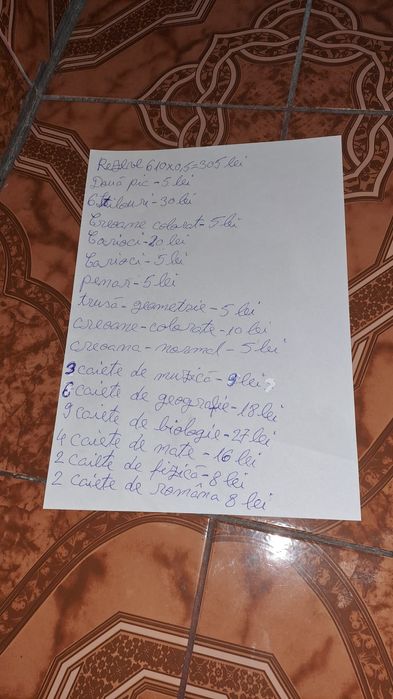 610x0,5=305 lei
Două pic - 5 lei
6 Stilouri - 30 lei
Creoane colorat - 5 lei
Carioci - 20 lei
Carioci - 5 lei
penar - 5 lei
trusă - geometrie - 5 lei
creoane - colorate - 10 lei
creoana - normal - 5 lei
3 caiete de muzică - 9 lei
6 caiete de geografie - 18 lei
9 caiete de biologie - 27 lei
4 caiete de mate - 16 lei
2 caiete de fizică - 8 lei
2 caiete de româna 8 lei